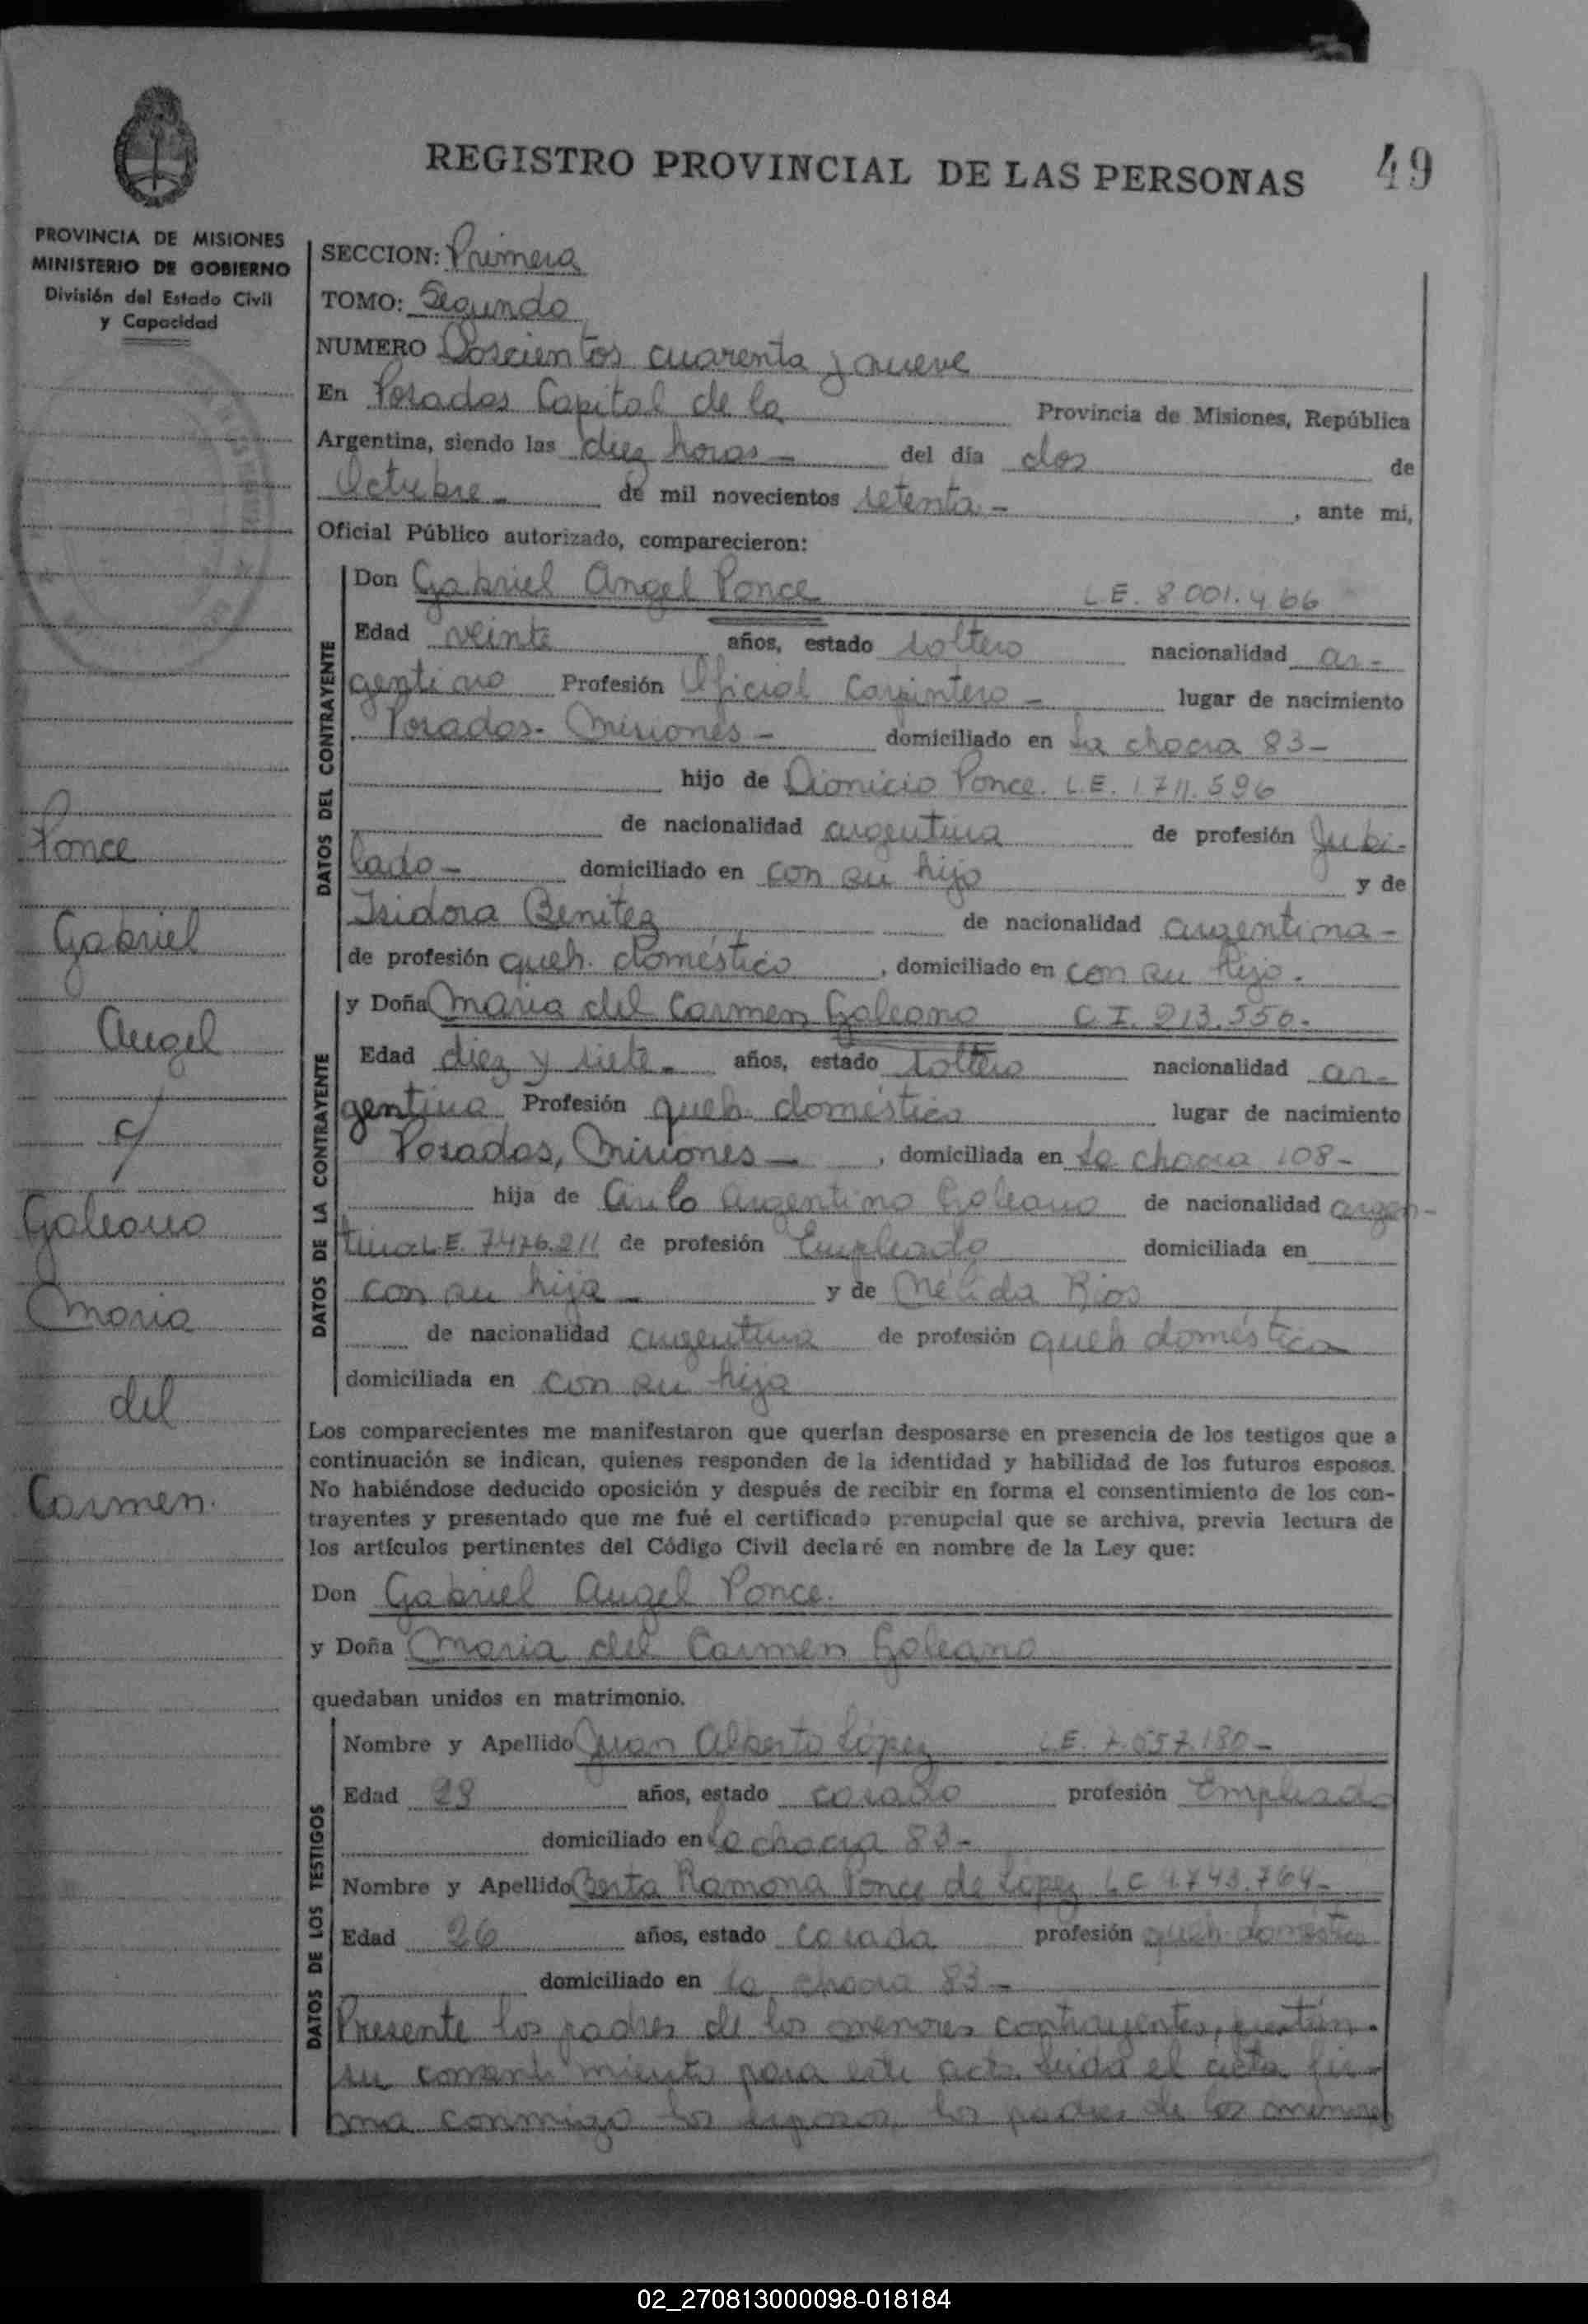 REGISTRO PROVINCIAL DE LAS PERSONAS 49
PROVINCIA DE MISIONES
MINISTERIO DE GOBIERNO
División del Estado Civil
y Capacidad
SECCION: Primera
TOMO: Segundo
NUMERO Doscientos cuarenta y nueve
En Posadas Capital de la Provincia de Misiones, República
Argentina, siendo las diez horas - del día dos de
Octubre - de mil novecientos setenta - , ante mi,
Oficial Público autorizado, comparecieron:
DATOS DEL CONTRAYENTE
Don Gabriel Angel Ponce L.E. 8.001.466
Edad veinte años, estado soltero nacionalidad ar-
gentino Profesión Oficial Carpintero - lugar de nacimiento
Posadas - Misiones - domiciliado en La chacra 83 -
hijo de Dionicio Ponce. L.E. 1711.596
de nacionalidad argentina de profesión Jubi-
lado - domiciliado en con su hijo y de
Isidora Benitez de nacionalidad argentina -
de profesión queh. doméstico , domiciliado en con su hijo.
DATOS DE LA CONTRAYENTE
y Doña Maria del Carmen Galeano C.I. 213.556.
Edad diez y siete - años, estado soltero nacionalidad ar-
gentina Profesión queh. doméstico lugar de nacimiento
Posadas, Misiones - , domiciliada en La chacra 108 -
hija de Argentino Galeano de nacionalidad argen-
tina L.E. 7476.211 de profesión Empleado domiciliada en
con su hija - y de Nélida Rios
de nacionalidad argentina de profesión queh doméstico
domiciliada en con su hija
Los comparecientes me manifestaron que querían desposarse en presencia de los testigos que a
continuación se indican, quienes responden de la identidad y habilidad de los futuros esposos.
No habiéndose deducido oposición y después de recibir en forma el consentimiento de los con-
trayentes y presentado que me fué el certificado prenupcial que se archiva, previa lectura de
los artículos pertinentes del Código Civil declaré en nombre de la Ley que:
Don Gabriel Angel Ponce.
y Doña Maria del Carmen Galeano
quedaban unidos en matrimonio.
DATOS DE LOS TESTIGOS
Nombre y Apellido Juan Alberto López L.E. 7.557.180 -
Edad 29 años, estado casado profesión Empleado
domiciliado en La chacra 83 -
Nombre y Apellido Berta Ramona Ponce de Lopez L.C 4.743.764 -
Edad 26 años, estado casada profesión queh. doméstico
domiciliado en La chacra 83 -
Presente los padres de los menores contrayentes,
su consentimiento para este acto. Leida el acta fir-
ma conmigo los esposos, los padres de los menores
Ponce
Gabriel
Angel
c/
Galeano
Maria
del
Carmen.
02_270813000098-018184